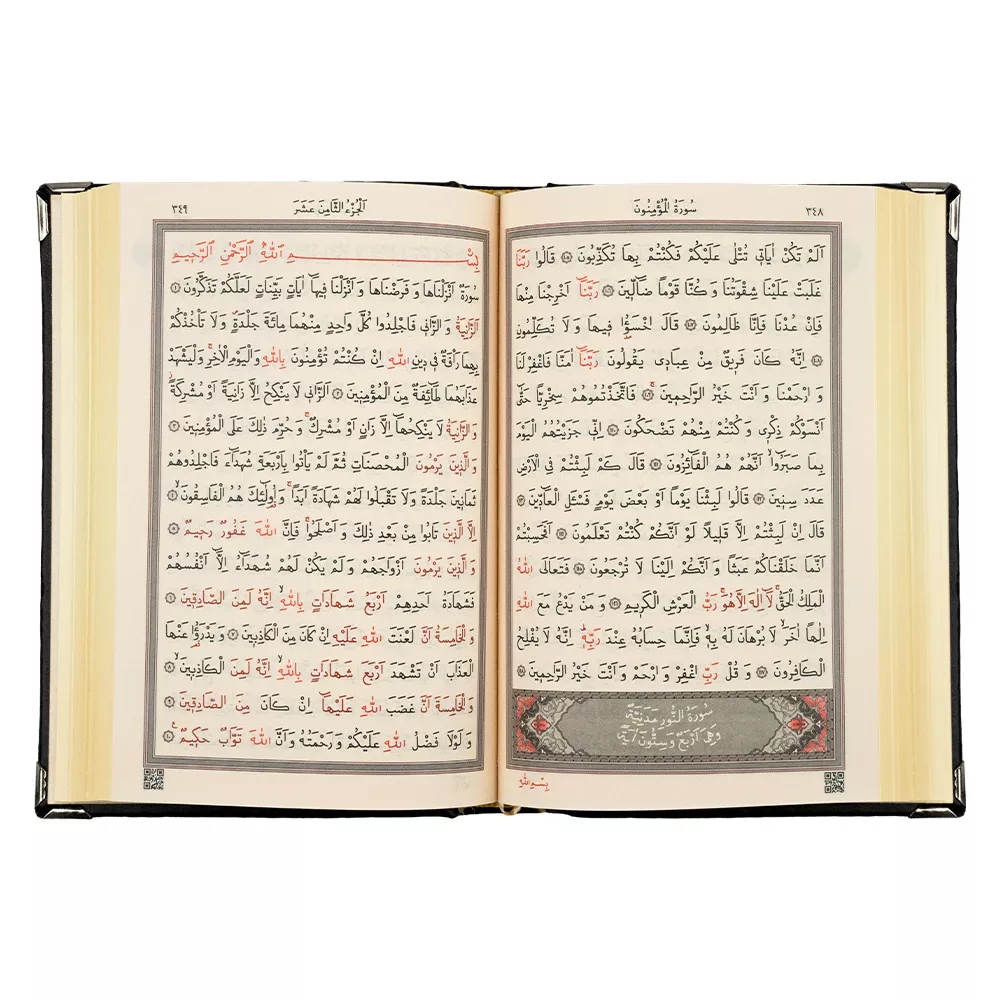 سُورَةُ الْمُؤْمِنُونَ
٣٤٨
اَلَمْ تَكُنْ اٰيَاتٖى تُتْلٰى عَلَيْكُمْ فَكُنْتُمْ بِهَا تُكَذِّبُونَ ﴿١٠٥﴾ قَالُوا رَبَّنَا
غَلَبَتْ عَلَيْنَا شِقْوَتُنَا وَكُنَّا قَوْمًا ضَٓالّٖينَ ﴿١٠٦﴾ رَبَّنَٓا اَخْرِجْنَا مِنْهَا
فَاِنْ عُدْنَا فَاِنَّا ظَالِمُونَ ﴿١٠٧﴾ قَالَ اخْسَؤُ۫ا فٖيهَا وَ لَا تُكَلِّمُونِ
﴿١٠٨﴾ اِنَّهُ كَانَ فَرٖيقٌ مِنْ عِبَادٖى يَقُولُونَ رَبَّنَٓا اٰمَنَّا فَاغْفِرْ لَنَا
وَ ارْحَمْنَا وَ اَنْتَ خَيْرُ الرَّاحِمٖينَ ﴿١٠٩﴾ فَاتَّخَذْتُمُوهُمْ سِخْرِيًّا حَتّٰٓى
اَنْسَوْكُمْ ذِكْرٖى وَ كُنْتُمْ مِنْهُمْ تَضْحَكُونَ ﴿١١٠﴾ اِنّٖى جَزَيْتُهُمُ الْيَوْمَ
بِمَا صَبَرُٓوا اَنَّهُمْ هُمُ الْفَٓائِزُونَ ﴿١١١﴾ قَالَ كَمْ لَبِثْتُمْ فِى الْاَرْضِ
عَدَدَ سِنٖينَ ﴿١١٢﴾ قَالُوا لَبِثْنَا يَوْمًا اَوْ بَعْضَ يَوْمٍ فَسْـَٔلِ الْعَٓادّٖينَ ﴿١١٣﴾
قَالَ اِنْ لَبِثْتُمْ اِلَّا قَلٖيلًا لَوْ اَنَّكُمْ كُنْتُمْ تَعْلَمُونَ ﴿١١٤﴾ اَفَحَسِبْتُمْ
اَنَّمَا خَلَقْنَاكُمْ عَبَثًا وَ اَنَّكُمْ اِلَيْنَا لَا تُرْجَعُونَ ﴿١١٥﴾ فَتَعَالَى اللّٰهُ
الْمَلِكُ الْحَقُّ لَٓا اِلٰهَ اِلَّا هُوَ رَبُّ الْعَرْشِ الْكَرٖيمِ ﴿١١٦﴾ وَ مَنْ يَدْعُ مَعَ اللّٰهِ
اِلٰهًا اٰخَرَ لَا بُرْهَانَ لَهُ بِهٖ فَاِنَّمَا حِسَابُهُ عِنْدَ رَبِّهٖ اِنَّهُ لَا يُفْلِحُ
الْكَافِرُونَ ﴿١١٧﴾ وَ قُلْ رَبِّ اغْفِرْ وَ ارْحَمْ وَ اَنْتَ خَيْرُ الرَّاحِمٖينَ ﴿١١٨﴾
سُورَةُ النُّورِ مَدَنِيَّةٌ
وَهِىَ اَرْبَعٌ وَ سِتُّونَ اٰيَةً
بِسْمِ اللّٰهِ
اَلْجُزْءُ الثَّامِنَ عَشَرَ
٣٤٩
بِسْمِ اللّٰهِ الرَّحْمٰنِ الرَّحٖيمِ
سُورَةٌ اَنْزَلْنَاهَا وَ فَرَضْنَاهَا وَ اَنْزَلْنَا فٖيهَٓا اٰيَاتٍ بَيِّنَاتٍ لَعَلَّكُمْ تَذَكَّرُونَ ﴿١﴾
اَلزَّانِيَةُ وَ الزَّانٖى فَاجْلِدُوا كُلَّ وَاحِدٍ مِنْهُمَا مِائَةَ جَلْدَةٍ وَ لَا تَأْخُذْكُمْ
بِهِمَا رَأْفَةٌ فٖى دٖينِ اللّٰهِ اِنْ كُنْتُمْ تُؤْمِنُونَ بِاللّٰهِ وَ الْيَوْمِ الْاٰخِرِ وَ لْيَشْهَدْ
عَذَابَهُمَا طَٓائِفَةٌ مِنَ الْمُؤْمِنٖينَ ﴿٢﴾ اَلزَّانٖى لَا يَنْكِحُ اِلَّا زَانِيَةً اَوْ مُشْرِكَةً
وَ الزَّانِيَةُ لَا يَنْكِحُهَٓا اِلَّا زَانٍ اَوْ مُشْرِكٌ وَ حُرِّمَ ذٰلِكَ عَلَى الْمُؤْمِنٖينَ ﴿٣﴾
وَ الَّذٖينَ يَرْمُونَ الْمُحْصَنَاتِ ثُمَّ لَمْ يَأْتُوا بِاَرْبَعَةِ شُهَدَٓاءَ فَاجْلِدُوهُمْ
ثَمَانٖينَ جَلْدَةً وَ لَا تَقْبَلُوا لَهُمْ شَهَادَةً اَبَدًا وَ اُولٰٓئِكَ هُمُ الْفَاسِقُونَ ﴿٤﴾
اِلَّا الَّذٖينَ تَابُوا مِنْ بَعْدِ ذٰلِكَ وَ اَصْلَحُوا فَاِنَّ اللّٰهَ غَفُورٌ رَحٖيمٌ ﴿٥﴾
وَ الَّذٖينَ يَرْمُونَ اَزْوَاجَهُمْ وَ لَمْ يَكُنْ لَهُمْ شُهَدَٓاءُ اِلَّٓا اَنْفُسُهُمْ
فَشَهَادَةُ اَحَدِهِمْ اَرْبَعُ شَهَادَاتٍ بِاللّٰهِ اِنَّهُ لَمِنَ الصَّادِقٖينَ ﴿٦﴾
وَ الْخَامِسَةُ اَنَّ لَعْنَتَ اللّٰهِ عَلَيْهِ اِنْ كَانَ مِنَ الْكَاذِبٖينَ ﴿٧﴾ وَ يَدْرَؤُ۬ا عَنْهَا
الْعَذَابَ اَنْ تَشْهَدَ اَرْبَعَ شَهَادَاتٍ بِاللّٰهِ اِنَّهُ لَمِنَ الْكَاذِبٖينَ ﴿٨﴾
وَ الْخَامِسَةَ اَنَّ غَضَبَ اللّٰهِ عَلَيْهَٓا اِنْ كَانَ مِنَ الصَّادِقٖينَ ﴿٩﴾
وَ لَوْلَا فَضْلُ اللّٰهِ عَلَيْكُمْ وَ رَحْمَتُهُ وَ اَنَّ اللّٰهَ تَوَّابٌ حَكٖيمٌ ﴿١٠﴾